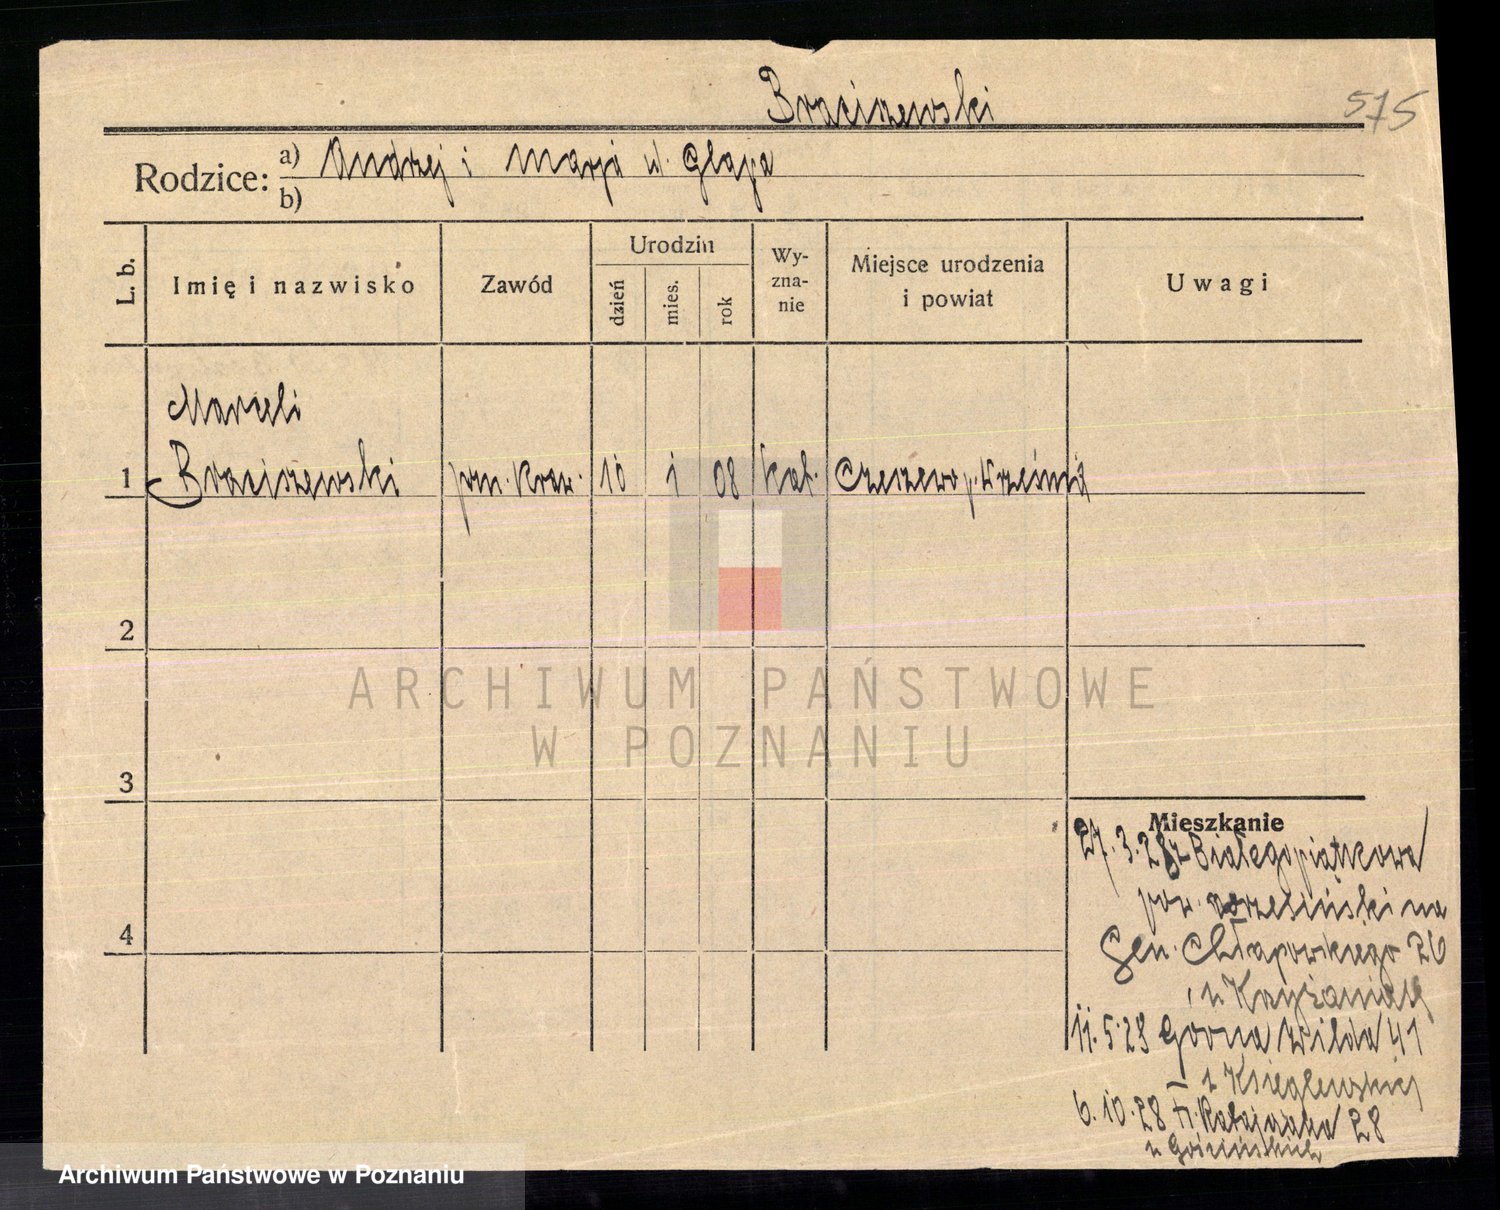 Braciszewski
575
Rodzice: a) Andrzej i Marja u. Glapa
b)
L. b.
Imię i nazwisko
Zawód
Urodzin
dzień
mies.
rok
Wy-
zna-
nie
Miejsce urodzenia
i powiat
Uwagi
Marceli
1 Braciszewski pom. kraw. 10 1 08 kat. Czeszewo p. Września
2
3
4
Mieszkanie
27.3.28 z Białegopiątkowa
pow. wrzesiński na
Gen. Chłapowskiego 26
u Krzyżaniak
11.5.28 Górna Wilda 41
6.10.28 Fr. Ratajczaka 28
ARCHIWUM PAŃSTWOWE
W POZNANIU
Archiwum Państwowe w Poznaniu